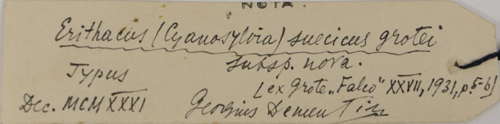 NOTA.
Erithacus (Cyanosylvia) suecicus grotei
subsp. nova.
Typus
[ex Grote „Falco" XXVII, 1931, p. 5-6]
Dec. MCMXXXI
Georgius Dementiev